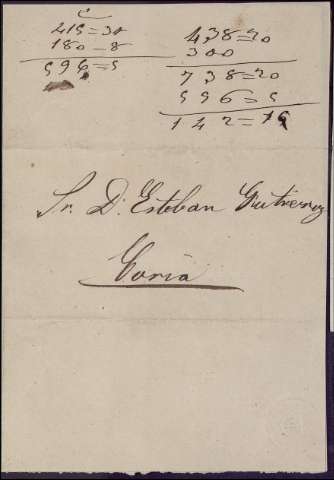 415=30
180=8
596=5
438=20
300
738=20
596=5
142=15
Sr. D. Esteban Gutierrez
Coria